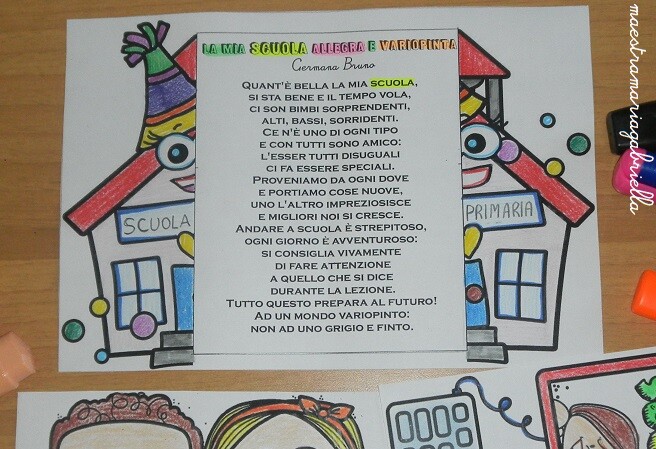 LA MIA SCUOLA ALLEGRA E VARIOPINTA
Germana Bruno
QUANT'È BELLA LA MIA SCUOLA,
SI STA BENE E IL TEMPO VOLA,
CI SON BIMBI SORPRENDENTI,
ALTI, BASSI, SORRIDENTI.
CE N'È UNO DI OGNI TIPO
E CON TUTTI SONO AMICO:
L'ESSER TUTTI DISUGUALI
CI FA ESSERE SPECIALI.
PROVENIAMO DA OGNI DOVE
E PORTIAMO COSE NUOVE,
UNO L'ALTRO IMPREZIOSISCE
E MIGLIORI NOI SI CRESCE.
ANDARE A SCUOLA È STREPITOSO,
OGNI GIORNO È AVVENTUROSO:
SI CONSIGLIA VIVAMENTE
DI FARE ATTENZIONE
A QUELLO CHE SI DICE
DURANTE LA LEZIONE.
TUTTO QUESTO PREPARA AL FUTURO!
AD UN MONDO VARIOPINTO:
NON AD UNO GRIGIO E FINTO.
SCUOLA
PRIMARIA
maestramariagabriella